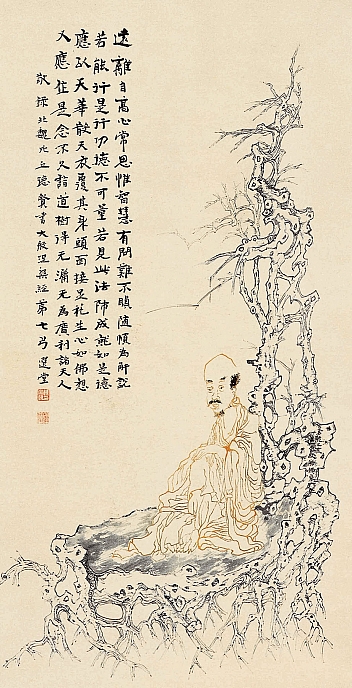 遠離自高心常思惟智慧有問難不瞋隨順為解說
若能行是行功德不可量若見此法師成就如是德
應以天華散天衣覆其身頭面接足礼生心如佛想
又應作是念不久詣道樹得无漏无為廣利諸天人
敬 北魏比丘德 書大般涅槃經第七弓 選堂